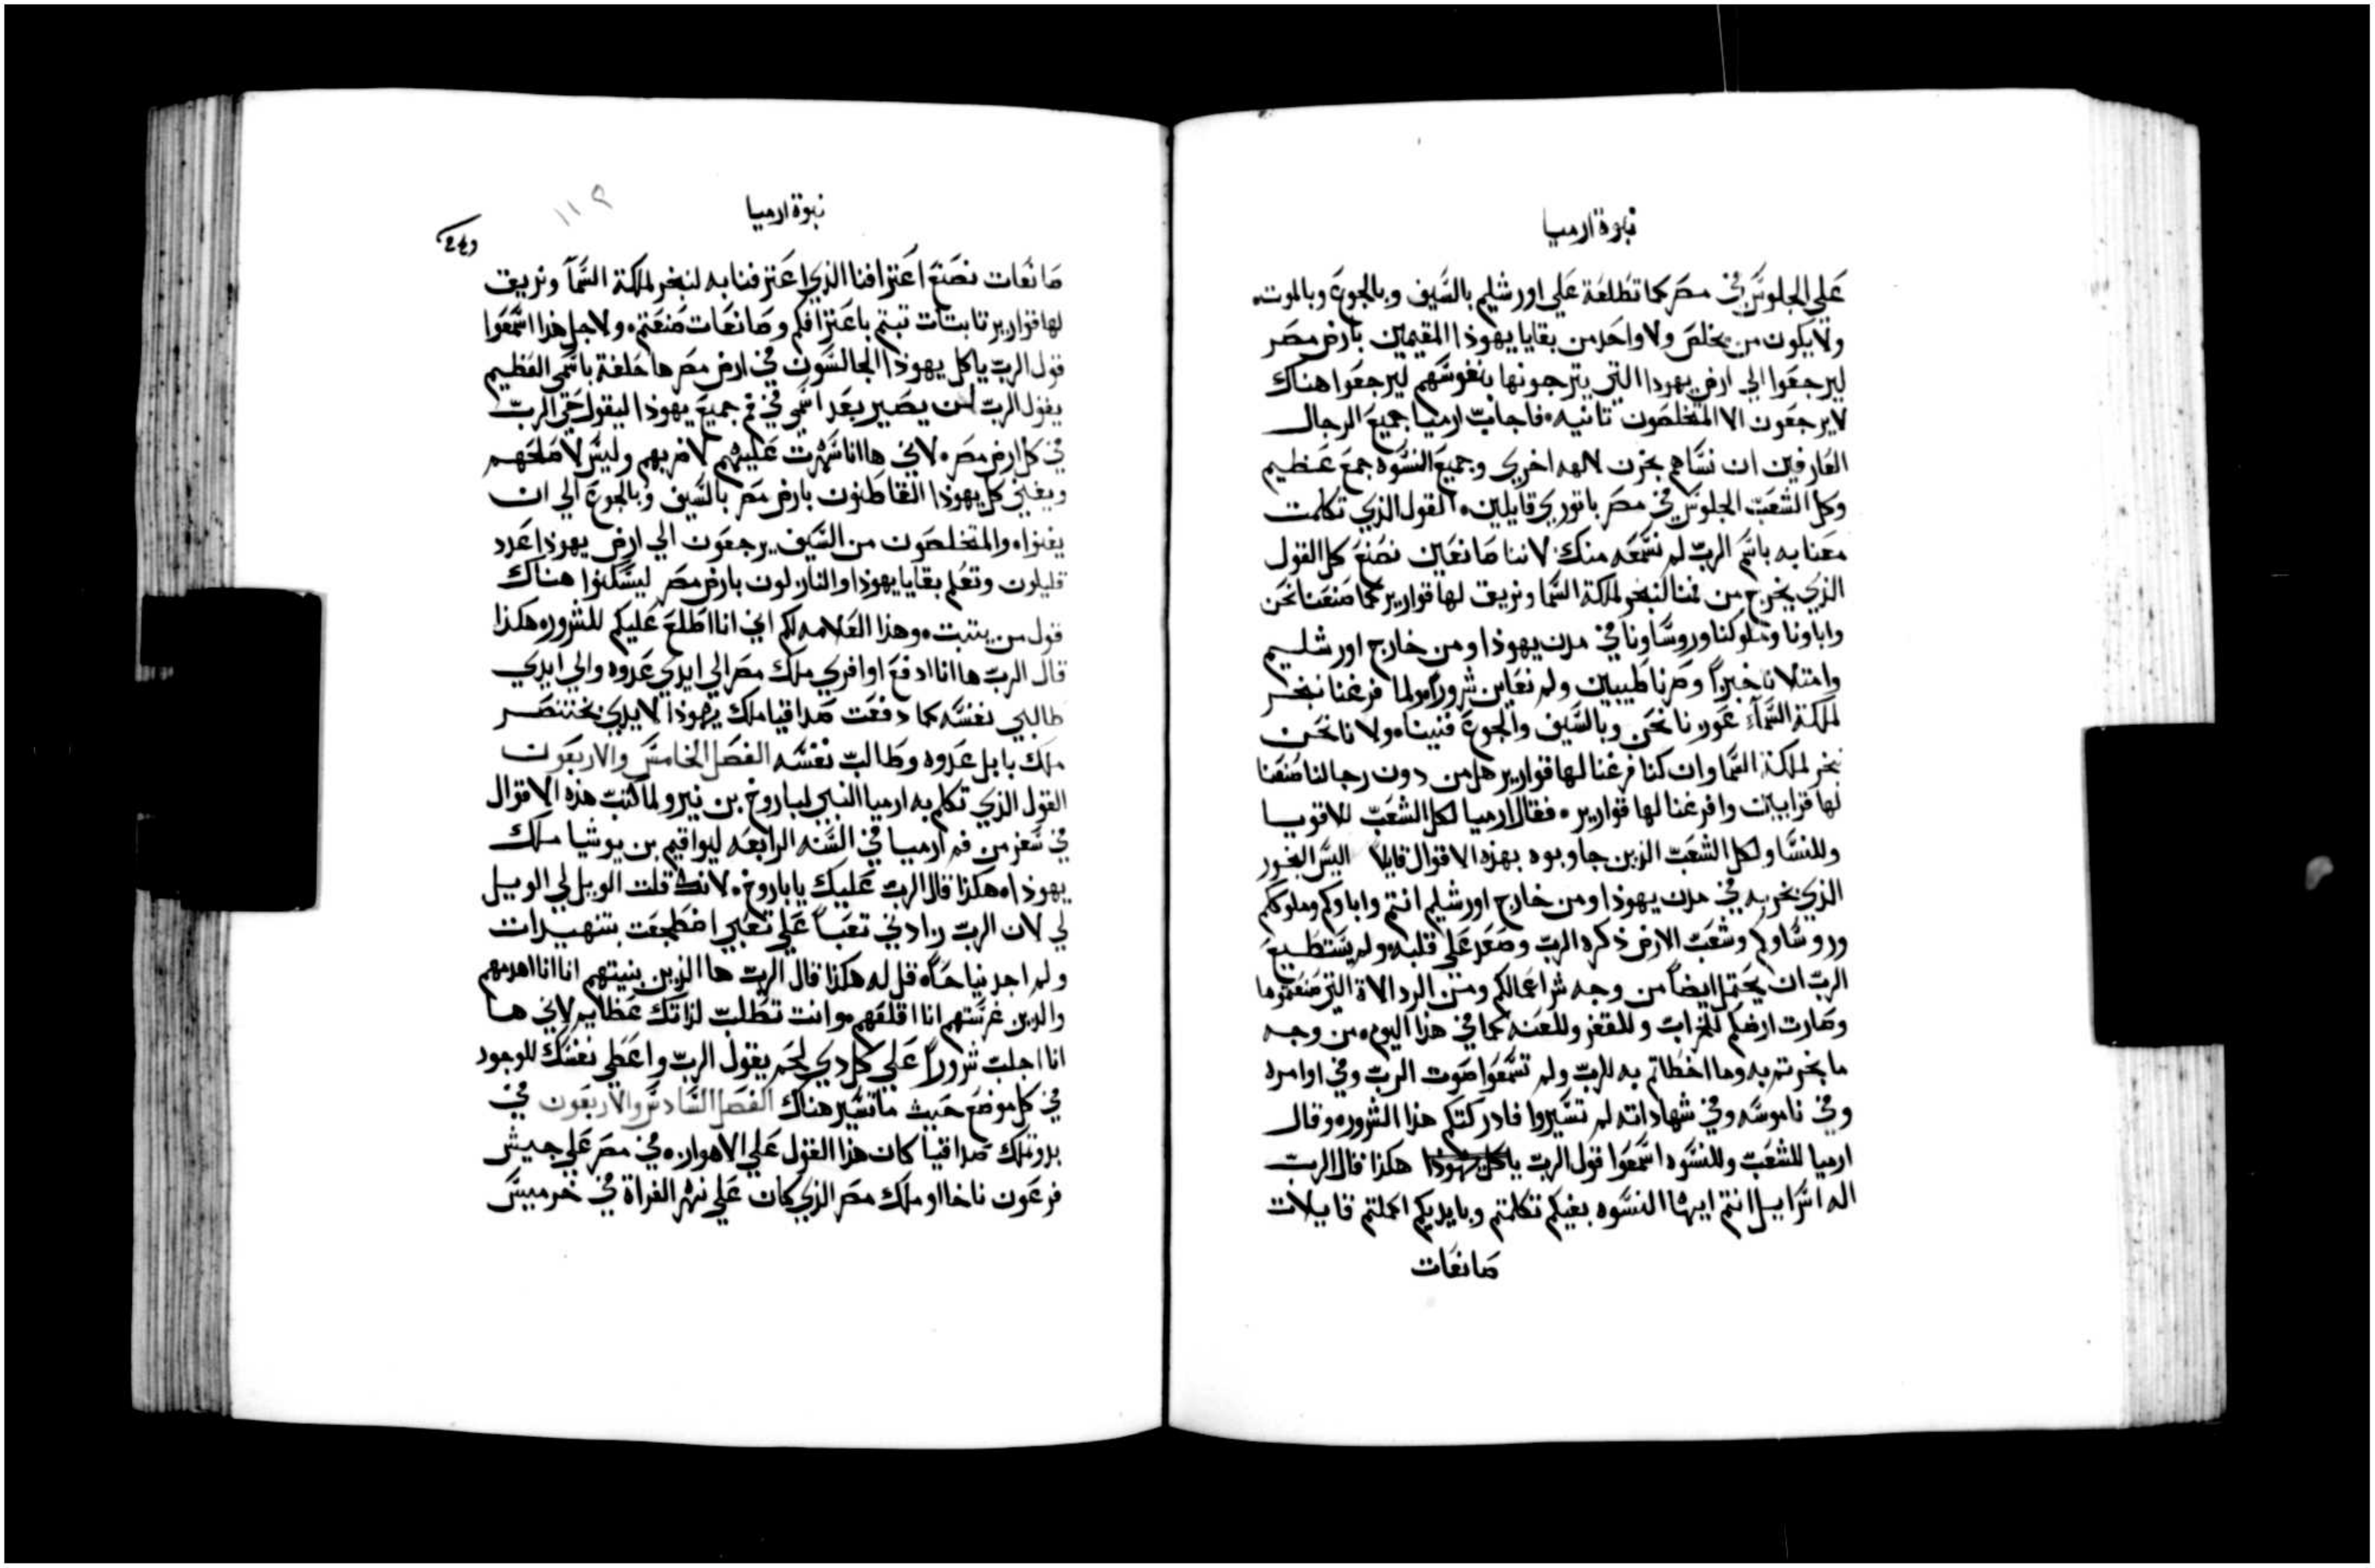 نبوة ارميا
علي الجلوس في مصر كما تطلعة علي اورشليم بالسيف وبالجوع وبالموت.
ولا يكون من يخلص ولا واحد من بقايا يهوذا المقيمين بارض مصر
ليرجعوا الي ارض يهودا التي يترجونها بنفوسهم ليرجعوا هناك
لا يرجعون الا المتخلصون ثانيه. فاجاب ارميا جميع الرجال
العارفين ان نساهم بخرن لالهه اخري وجميع النسوه جمع عظيم
وكل الشعب الجلوس في مصر باتوري قايلين. القول الذي تكلمت
معنا به باسم الرب لم نسمعه منك. لاننا صانعين نصنع كل القول
الذي يخرج من فمنا لنبخر لملكة السما ونريق لها قوارير كما صنعنا نحن
واباونا وملوكنا وروساونا في مدن يهوذا ومن خارج اورشليم
وامتلانا خبزاً وصرنا طيبين ولم نعاين شروراً. ولما فرغنا نبخر
لملكة السمآء عوزنا نحن وبالسيف والجوع فنينا. ولاننا نحن
نبخر لملكة السما وان كنا فرغنا لها قوارير هل من دون رجالنا صنعنا
لها قرابين وافرغنا لها قوارير. فقال ارميا لكل الشعب للاقويا
وللنسا ولكل الشعب الذين جاوبوه بهذه الاقوال قايلاً اليس البخور
الذي بخر به في مدن يهوذا ومن خارج اورشليم انتم واباوكم وملوككم
وروساوكم وشعب الارض ذكره الرب وصعد علي قلبه. ولم يستطيع
الرب ان يحتمل ايضاً من وجه شر اعمالكم ومن الرد الاة التي صنعتموها
وصارت ارضكم للخراب وللقفر وللعنه كما في هذا اليوم. من وجه
ما بخرتم به وما اخطاتم به للرب ولم تسمعوا صوت الرب وفي اوامره
وفي ناموسه وفي شهاداته لم تسيروا فادركتكم هذا الشرور. وقال
ارميا للشعب وللنسوه اسمعوا قول الرب يا كل يهوذا هكذا قال الرب
اله اسرايل انتم ايها النسوه بفيكم تكلمتم وبايديكم اكملتم قايلات
صانعات
نبوة ارميا
١١٩
صانعات نصنع اعترافنا الذي اعترفنا به لنبخر لملكة السمآ ونريق
لها قوارير ثابتات تبتم باعترافكم وصانعات صنعتم. ولاجل هذا اسمعوا
قول الرب يا كل يهوذا الجالسون في ارض مصر ها حلفة باسمي العظيم
يقول الرب لن يصير بعد اسمي في فم جميع يهوذا ليقول حي الرب
في كل ارض مصر. لاني ها انا سهرت عليهم لاضربهم وليس لاصلحهم
ويفني كل يهوذا القاطنون بارض مصر بالسيف وبالجوع الي ان
يفنوا. والمتخلصون من السيف يرجعون الي ارض يهوذا عدد
قليلون وتعلم بقايا يهوذا والنازلون بارض مصر ليسكنوا هناك
قول من يثبت. وهذا العلامه لكم اني انا اطلع عليكم للشرور. هكذا
قال الرب ها انا ادفع اوافري ملك مصر الي ايدي عدوه والي ايدي
طالبي نفسه كما دفعت صداقيا ملك يهوذا لايدي بختنصر
ملك بابل عدوه وطالب نفسه الفصل الخامس والاربعون
القول الذي تكلم به ارميا النبي لباروخ بن نيرو لما كتب هذه الاقوال
في سفر من فم ارميا في السنه الرابعه ليواقيم بن يوشيا ملك
يهوذا. هكذا قال الرب عليك يا باروخ. لانك قلت الويل لي الويل
لي لان الرب زادني تعباً علي تعبي اضطجعت بتنهيدات
ولم اجد نياحاً. قل له هكذا قال الرب ها الذين بنيتهم انا انا اهدمهم
والذين غرستهم انا اقلعهم. وانت تطلب لذاتك عظايم لاني ها
انا اجلب شروراً علي كل ذي لحم يقول الرب واعطي نفسك للوجود
في كل موضع حيث ما تسير هناك الفصل السادس والاربعون في
بدو تملك صداقيا كان هذا القول علي الاهواز. في مصر علي جيش
فرعون ناخااو ملك مصر الذي كان علي نهر الفراة في خرميس